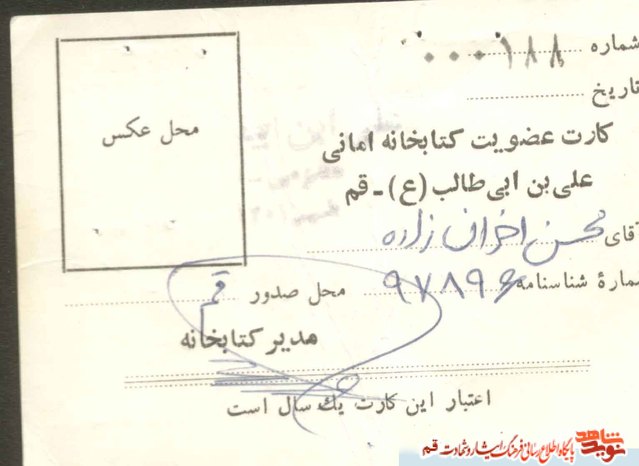 شماره ۰۰۰۱۸۸
تاریخ
محل عکس
کارت عضویت کتابخانه امانی
علی بن ابی طالب (ع) - قم
آقای محسن اخوان زاده
شمارهٔ شناسنامه ۹۷۸۹۶ محل صدور قم
مدیر کتابخانه
اعتبار این کارت یك سال است
نوید شاهد پایگاه اطلاع رسانی فرهنگ ایثار و شهادت قم